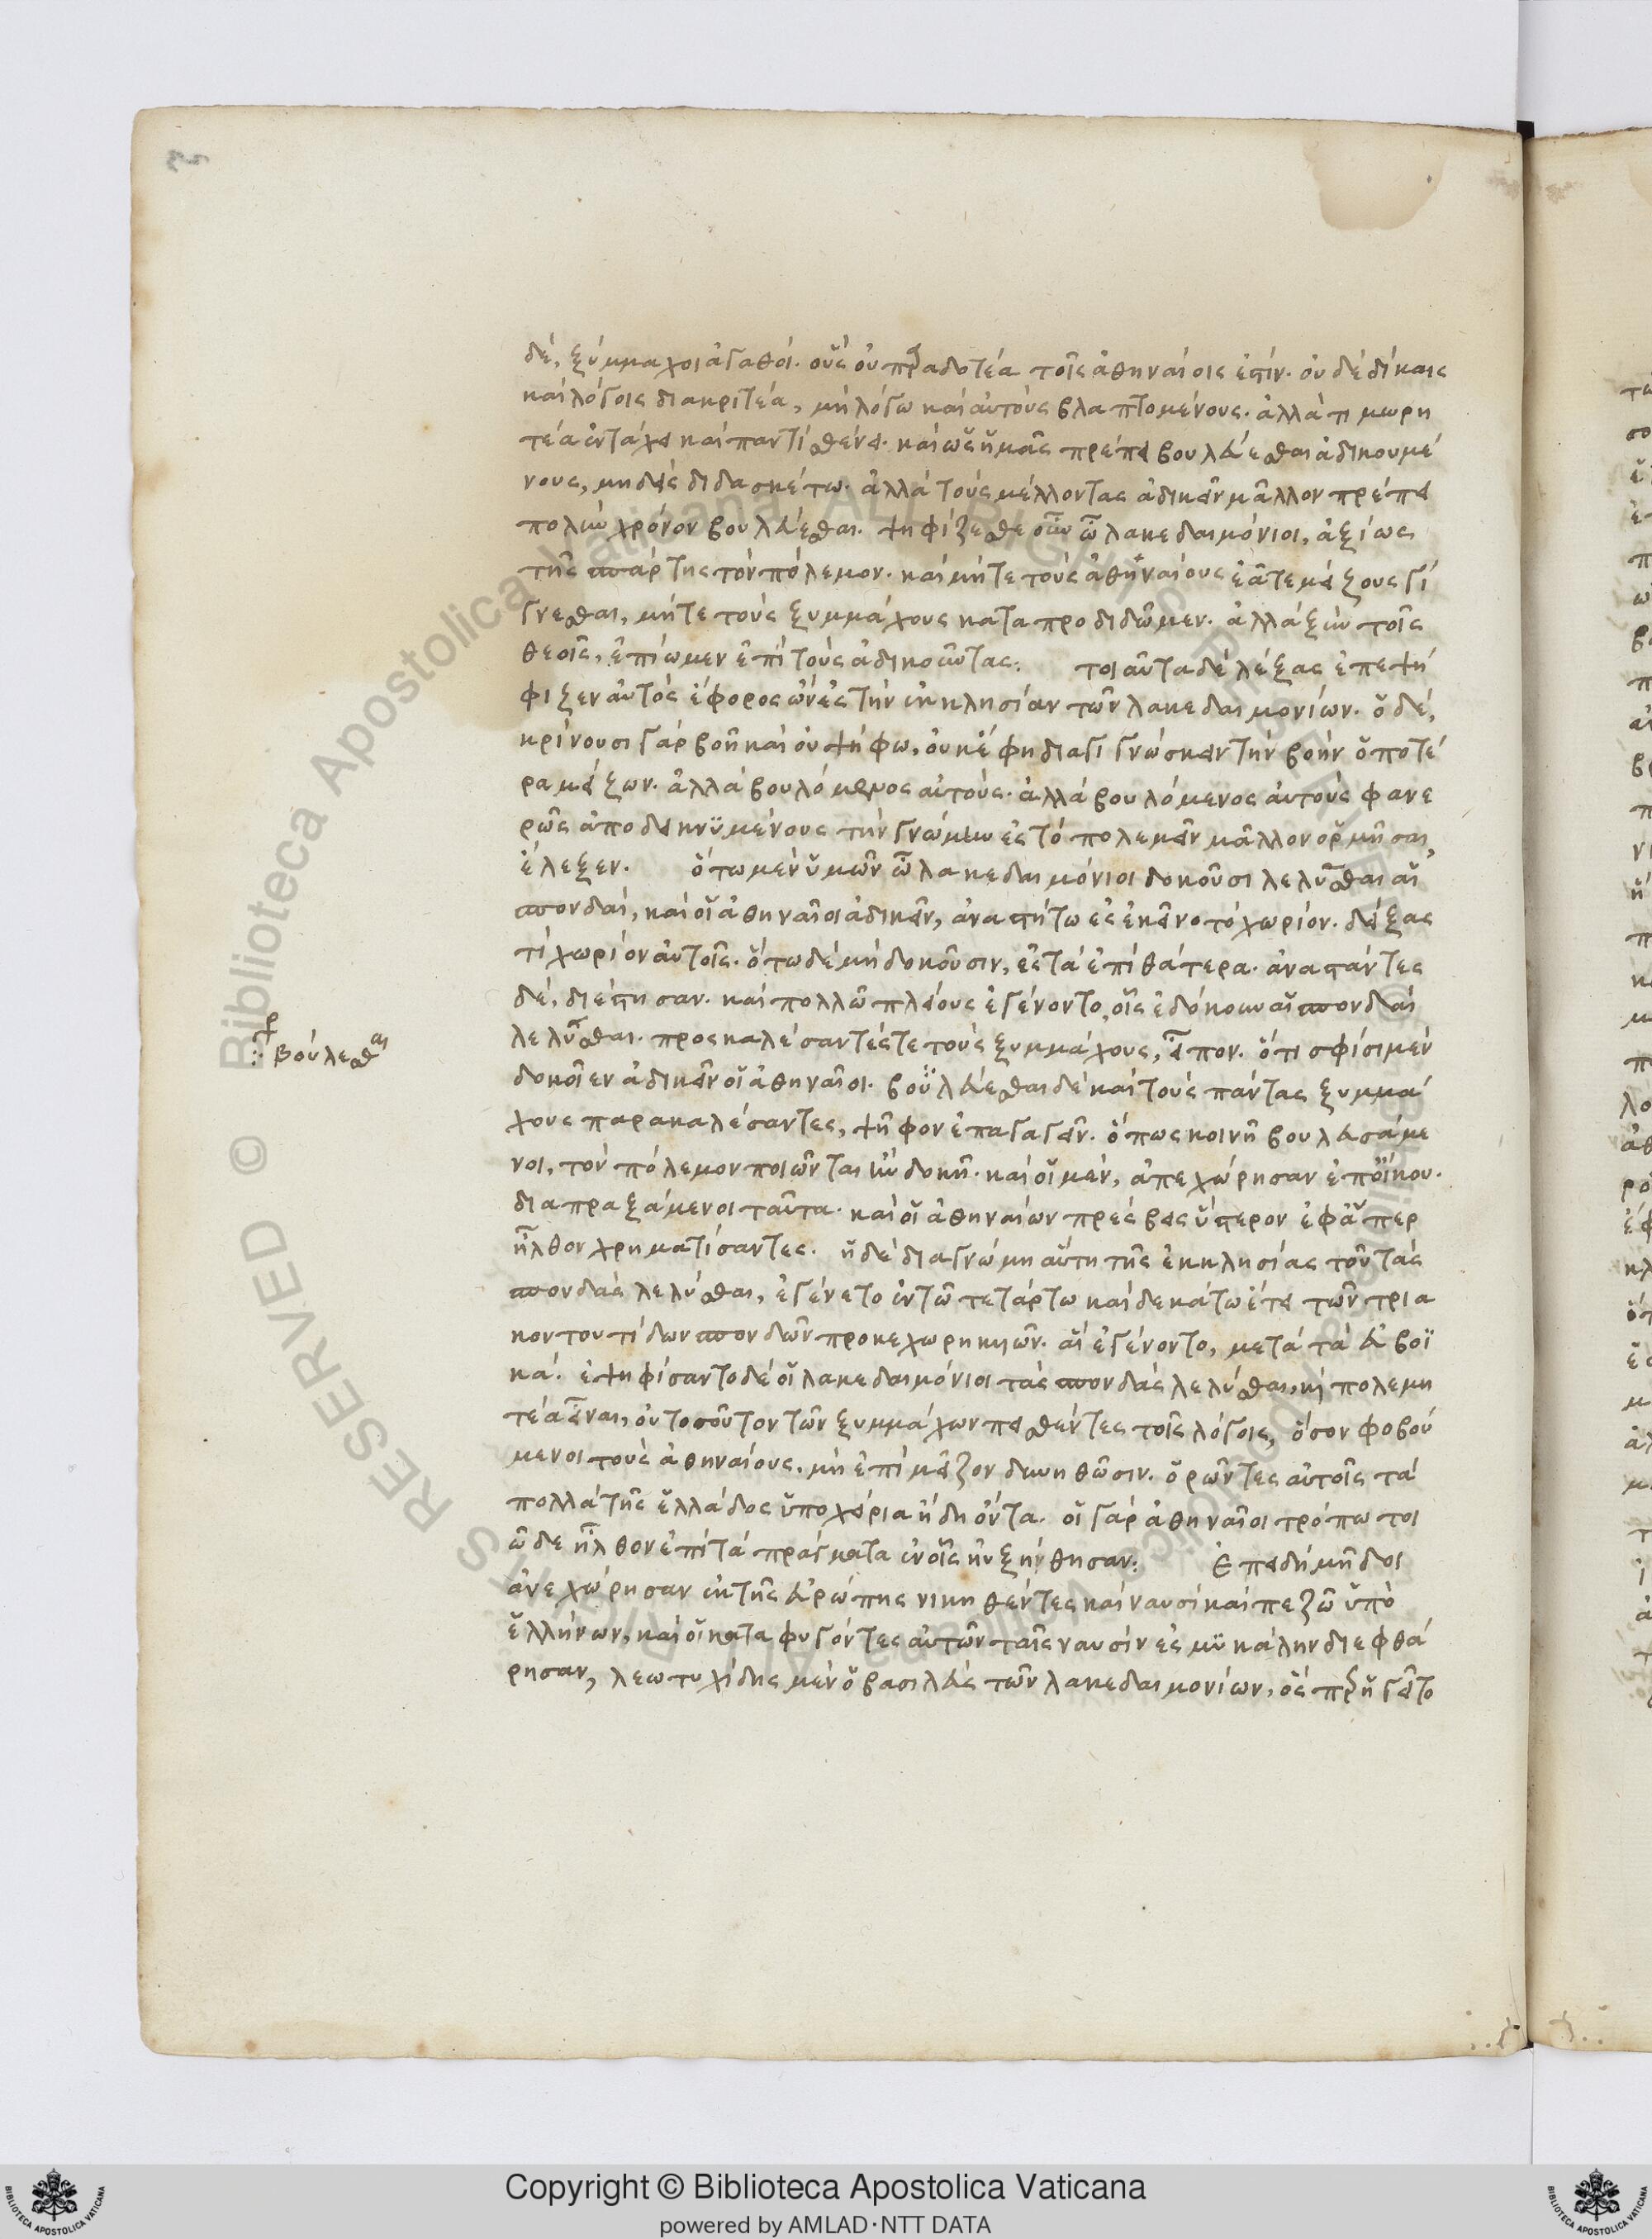 δέ, ξύμμαχοι ἀγαθοί. οὓς οὐ παραδοτέα τοῖς ἀθηναίοις ἐστίν. οὐδὲ δίκαις
καὶ λόγοις διακριτέα, μὴ λόγω καὶ αὐτοὺς βλαπτομένους. ἀλλὰ τιμωρη
τέα ἐν τάχει καὶ παντὶ σθένει. καὶ ὡς ἡμᾶς πρέπει βουλεύεσθαι ἀδικουμέ
νους, μηδεὶς διδασκέτω. ἀλλὰ τοὺς μέλλοντας ἀδικεῖν μᾶλλον πρέπει
πολὺν χρόνον βουλεύεσθαι. ψηφίζεσθε οὖν ὦ λακεδαιμόνιοι, ἀξίως
τῆς σπάρτης τὸν πόλεμον. καὶ μήτε τοὺς ἀθηναίους ἐᾶτε μείζους γί
γνεσθαι, μήτε τοὺς ξυμμάχους καταπροδιδῶμεν. ἀλλὰ ξὺν τοῖς
θεοῖς, ἐπίωμεν ἐπὶ τοὺς ἀδικοῦντας: τοιαῦτα δὲ λέξας ἐπεψή
φιζεν αὐτὸς ἔφορος ὢν ἐς τὴν ἐκκλησίαν τῶν λακεδαιμονίων. ὁ δέ,
κρίνουσι γὰρ βοῆ καὶ οὐ ψήφω, οὐκ ἔφη διαγιγνώσκειν τὴν βοὴν ὁποτέ
ρα μείζων. ἀλλὰ βουλόμενος αὐτούς. ἀλλὰ βουλόμενος αὐτοὺς φανε
ρῶς ἀποδεικνυμένους τὴν γνώμην ἐς τὸ πολεμεῖν μᾶλλον ὁρμῆσαι,
ἔλεξεν. ὅτω μὲν ὑμῶν ὦ λακεδαιμόνιοι δοκοῦσι λελῦσθαι αἱ
σπονδαί, καὶ οἱ ἀθηναῖοι ἀδικεῖν, ἀναστήτω ἐς ἐκεῖνο τὸ χωρίον. δείξας
τὶ χωρίον αὐτοῖς. ὅτω δὲ μὴ δοκοῦσιν, ἐς τὰ ἐπὶ θάτερα. ἀναστάντες
δέ, διέστησαν. καὶ πολλῶ πλείους ἐγένοντο, οἷς ἐδόκουν αἱ σπονδαὶ
λελῦσθαι. προσκαλέσαντές τε τοὺς ξυμμάχους, εἶπον. ὅτι σφίσι μὲν
βούλεσθαι
δοκοῖεν ἀδικεῖν οἱ ἀθηναῖοι. βουλεύεσθαι δὲ καὶ τοὺς πάντας ξυμμά
χους παρακαλέσαντες, ψῆφον ἐπαγαγεῖν. ὅπως κοινῆ βουλευσάμε
νοι, τὸν πόλεμον ποιῶνται ἢν δοκῆ. καὶ οἱ μέν, ἀπεχώρησαν ἐπ' οἴκου.
διαπραξάμενοι ταῦτα. καὶ οἱ ἀθηναίων πρέσβεις ὕστερον ἐφ' ἅπερ
ἦλθον χρηματίσαντες. ἡ δὲ διαγνώμη αὕτη τῆς ἐκκλησίας τοῦ τὰς
σπονδὰς λελύσθαι, ἐγένετο ἐν τῶ τετάρτω καὶ δεκάτω ἔτει τῶν τρια
κοντουτίδων σπονδῶν προκεχωρηκυιῶν. αἳ ἐγένοντο, μετὰ τὰ εὐβοϊ
κά. ἐψηφίσαντο δὲ οἱ λακεδαιμόνιοι τὰς σπονδὰς λελύσθαι, καὶ πολεμη
τέα εἶναι, οὐ τοσοῦτον τῶν ξυμμάχων πεισθέντες τοῖς λόγοις, ὅσον φοβού
μενοι τοὺς ἀθηναίους. μὴ ἐπὶ μεῖζον δυνηθῶσιν. ὁρῶντες αὐτοῖς τὰ
πολλὰ τῆς ἑλλάδος ὑποχείρια ἤδη ὄντα. οἱ γὰρ ἀθηναῖοι τρόπω τοι
ῶδε ἦλθον ἐπὶ τὰ πράγματα ἐν οἷς ηὐξήνθησαν: Ἐπειδὴ μῆδοι
ἀνεχώρησαν ἐκ τῆς εὐρώπης νικηθέντες καὶ ναυσὶ καὶ πεζῶ ὑπὸ
ἑλλήνων, καὶ οἱ καταφυγόντες αὐτῶν ταῖς ναυσὶν ἐς μυκάλην διεφθά
ρησαν, λεωτυχίδης μὲν ὁ βασιλεὺς τῶν λακεδαιμονίων, ὃς περ ἡγεῖτο
Copyright © Biblioteca Apostolica Vaticana
powered by AMLAD·NTT DATA